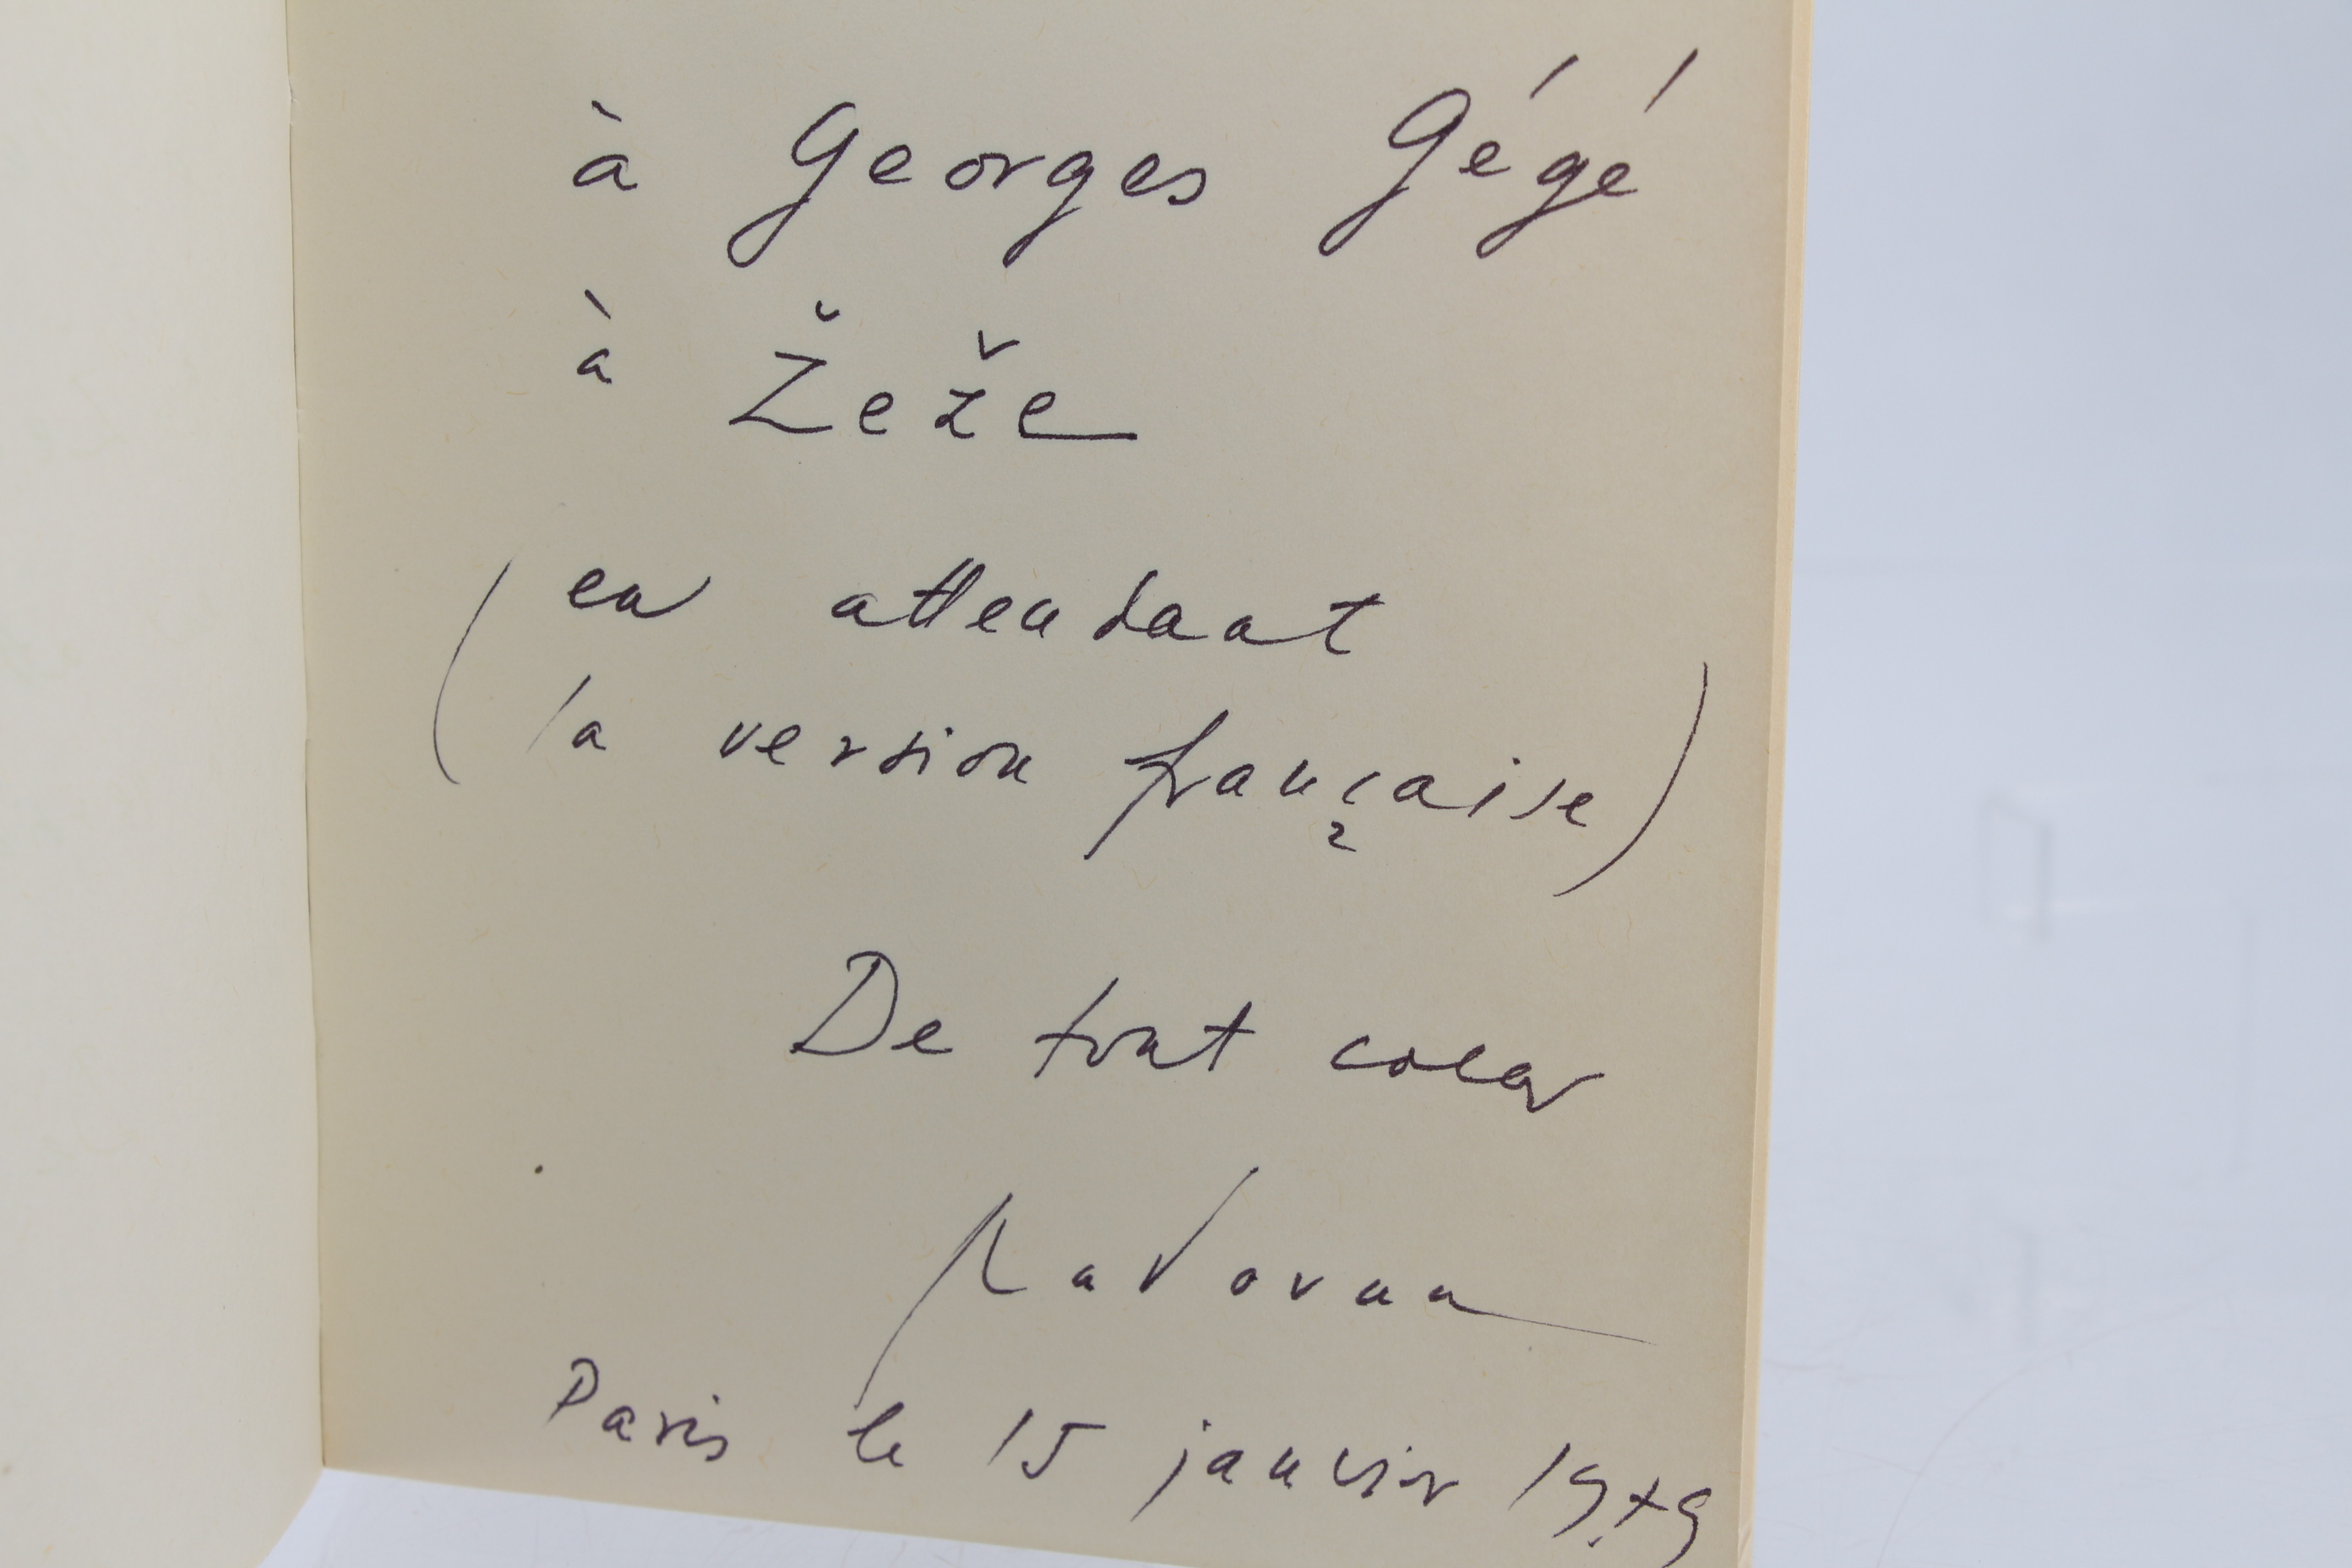 à Georges Gégé
à Žeže
(en attendant
la version française)
De tout coeur
Radovan
Paris le 15 janvier 1979